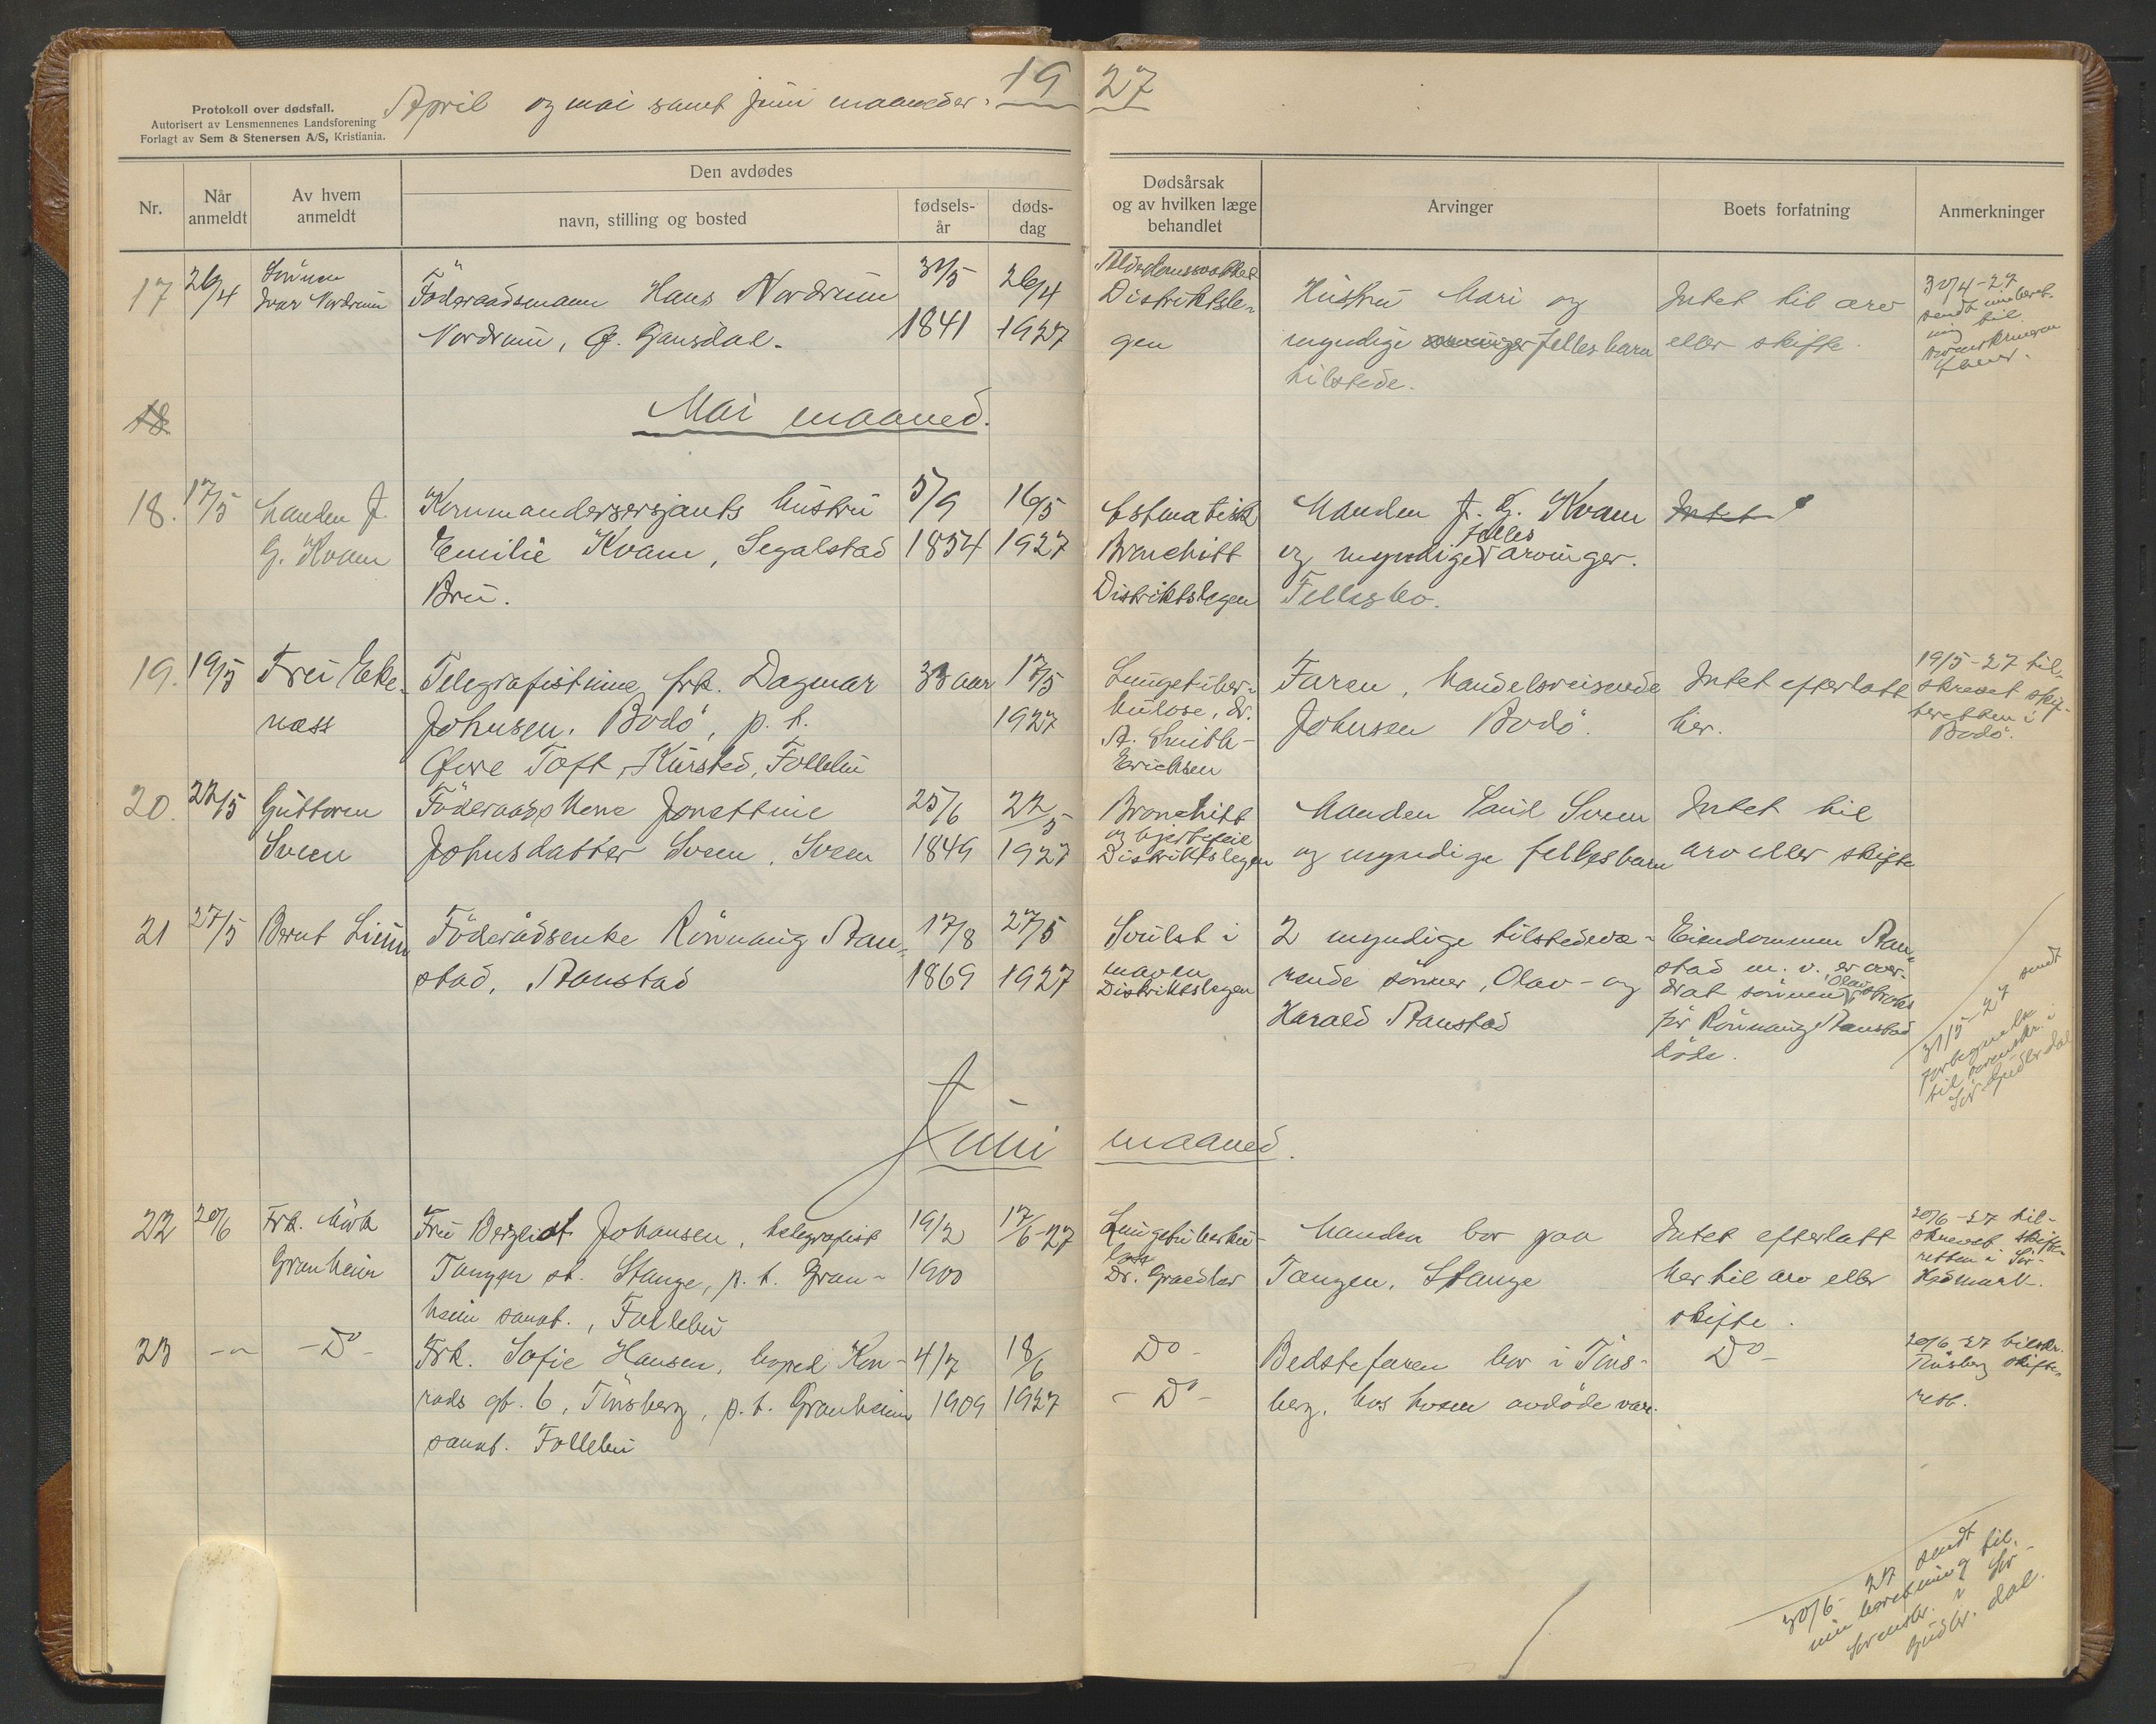 Protokoll over dødsfall.
Autorisert av Lensmennenes Landsforening
Forlagt av Sem & Stenersen A/S, Kristiania.
April og mai samt juni maaneder.
19 27
Nr.
Når anmeldt
Av hvem anmeldt
Den avdødes
navn, stilling og bosted
fødsels-år
døds-dag
Dødsårsak
og av hvilken læge
behandlet
Arvinger
Boets forfatning
Anmerkninger
17
26/4
Sönnen
Ivar Nordrum
Föderaadsmann Hans Nordrum
Nordrum, Ø. Gausdal.
31/5
1841
26/4
1927
Distriktsle-
gen
Hustru Mari og
myndige arvinger felles barn
tilstede.
Intet til arv
eller skifte.
30/4-27
sendt innberet-
ning til
sorenskriveren
18
Mai maaned.
18.
17/5
Manden J.
G. Kvam
Kommandersersjants hustru
Emilie Kvam, Segalstad
Bru.
5/9
1854
16/5
1927
Astmatisk
Bronchitt
Distriktslegen
Manden J. G. Kvam
felles
og myndige arvinger.
Fellesbo.
Intet
19.
19/5
Fru Eke-
næss
Telegrafistinne frk. Dagmar
Johnsen. Bodö, p. t.
Øvre Toft, Kursted, Follebu
33 aar
17/5
1927
Lungetuber-
kulose, dr.
A. Smith-
Erichsen
Faren, handelsreisende
Johnsen Bodö.
Intet efterlatt
her.
19/5-27 til-
skrevet skif-
teretten i
Bodö.
20.
22/5
Guttoren
Sveen
Jonettine
Johnsdatter Sveen, Sveen
25/6
1849
22/5
1927
Bronchitt
og hjertefeil
Distriktslegen
Manden Paul Sveen
og myndige felles barn
Intet til
arv eller skifte
21
27/5
Bernt Lium
Föderådsenke Rönnaug Stau-
stad, Staustad
17/8
1869
27/5
1927
Svulst i
maven
Distriktslegen
2 myndige tilstedevæ-
rende sönner, Olav - og
Harald Staustad
Eiendommen Stau-
stad m. v. er over-
Olav
drat sönnen straks
för Rönnaug Staustad
döde.
31/5-27 sendt
til sorenskr. i
Sör Gudbr.dal
Juni maaned.
22
20/6
Frk. Mörk
Granheim
Fru Bergliot Johansen, telegrafist
Tangen st. Stange, p. t. Gran-
heim sanat., Follebu
19/2
1900
17/6-27
Lungetuberku-
lose
Dr. Graedler
Manden bor paa
Tangen, Stange
Intet efterlatt
her til arv eller
skifte.
20/6-27 til-
skrevet skifte-
retten i Sör-
Hedmark.
23
-"-
-Do-
Frk. Sofie Hansen, boped Kon-
rads gt. 6, Tönsberg, p. t. Granheim
sanat. Follebu
4/7
1909
18/6
1927
Do-
-Do-
Bedstefaren bor i Töns-
berg, hos hvem avdöde var.
Do-
20/6-27 tilskr.
Tönsberg skifte-
rett.
30/6-27 sendt
min beretning til
sorenskr. i Sör-
Gudbr. dal.